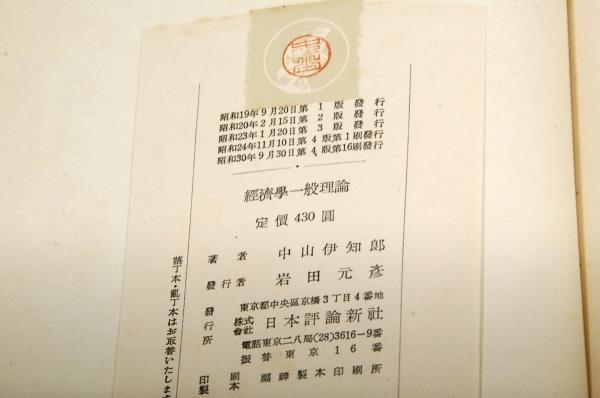 昭和19年9月20日第1版發行
昭和20年2月15日第2版發行
昭和23年1月20日第3版發行
昭和24年11月10日第4版第1刷發行
昭和30年9月30日第4版第16刷發行
經濟學一般理論
定價430圓
著者 中山伊知郎
發行者 岩田元彥
發行所
東京都中央區京橋3丁目4番地
株式會社 日本評論新社
電話東京二八局(28)3616-9番
振替東京16番
印刷製本 製本印刷所
落丁本・亂丁本はお取替いたします